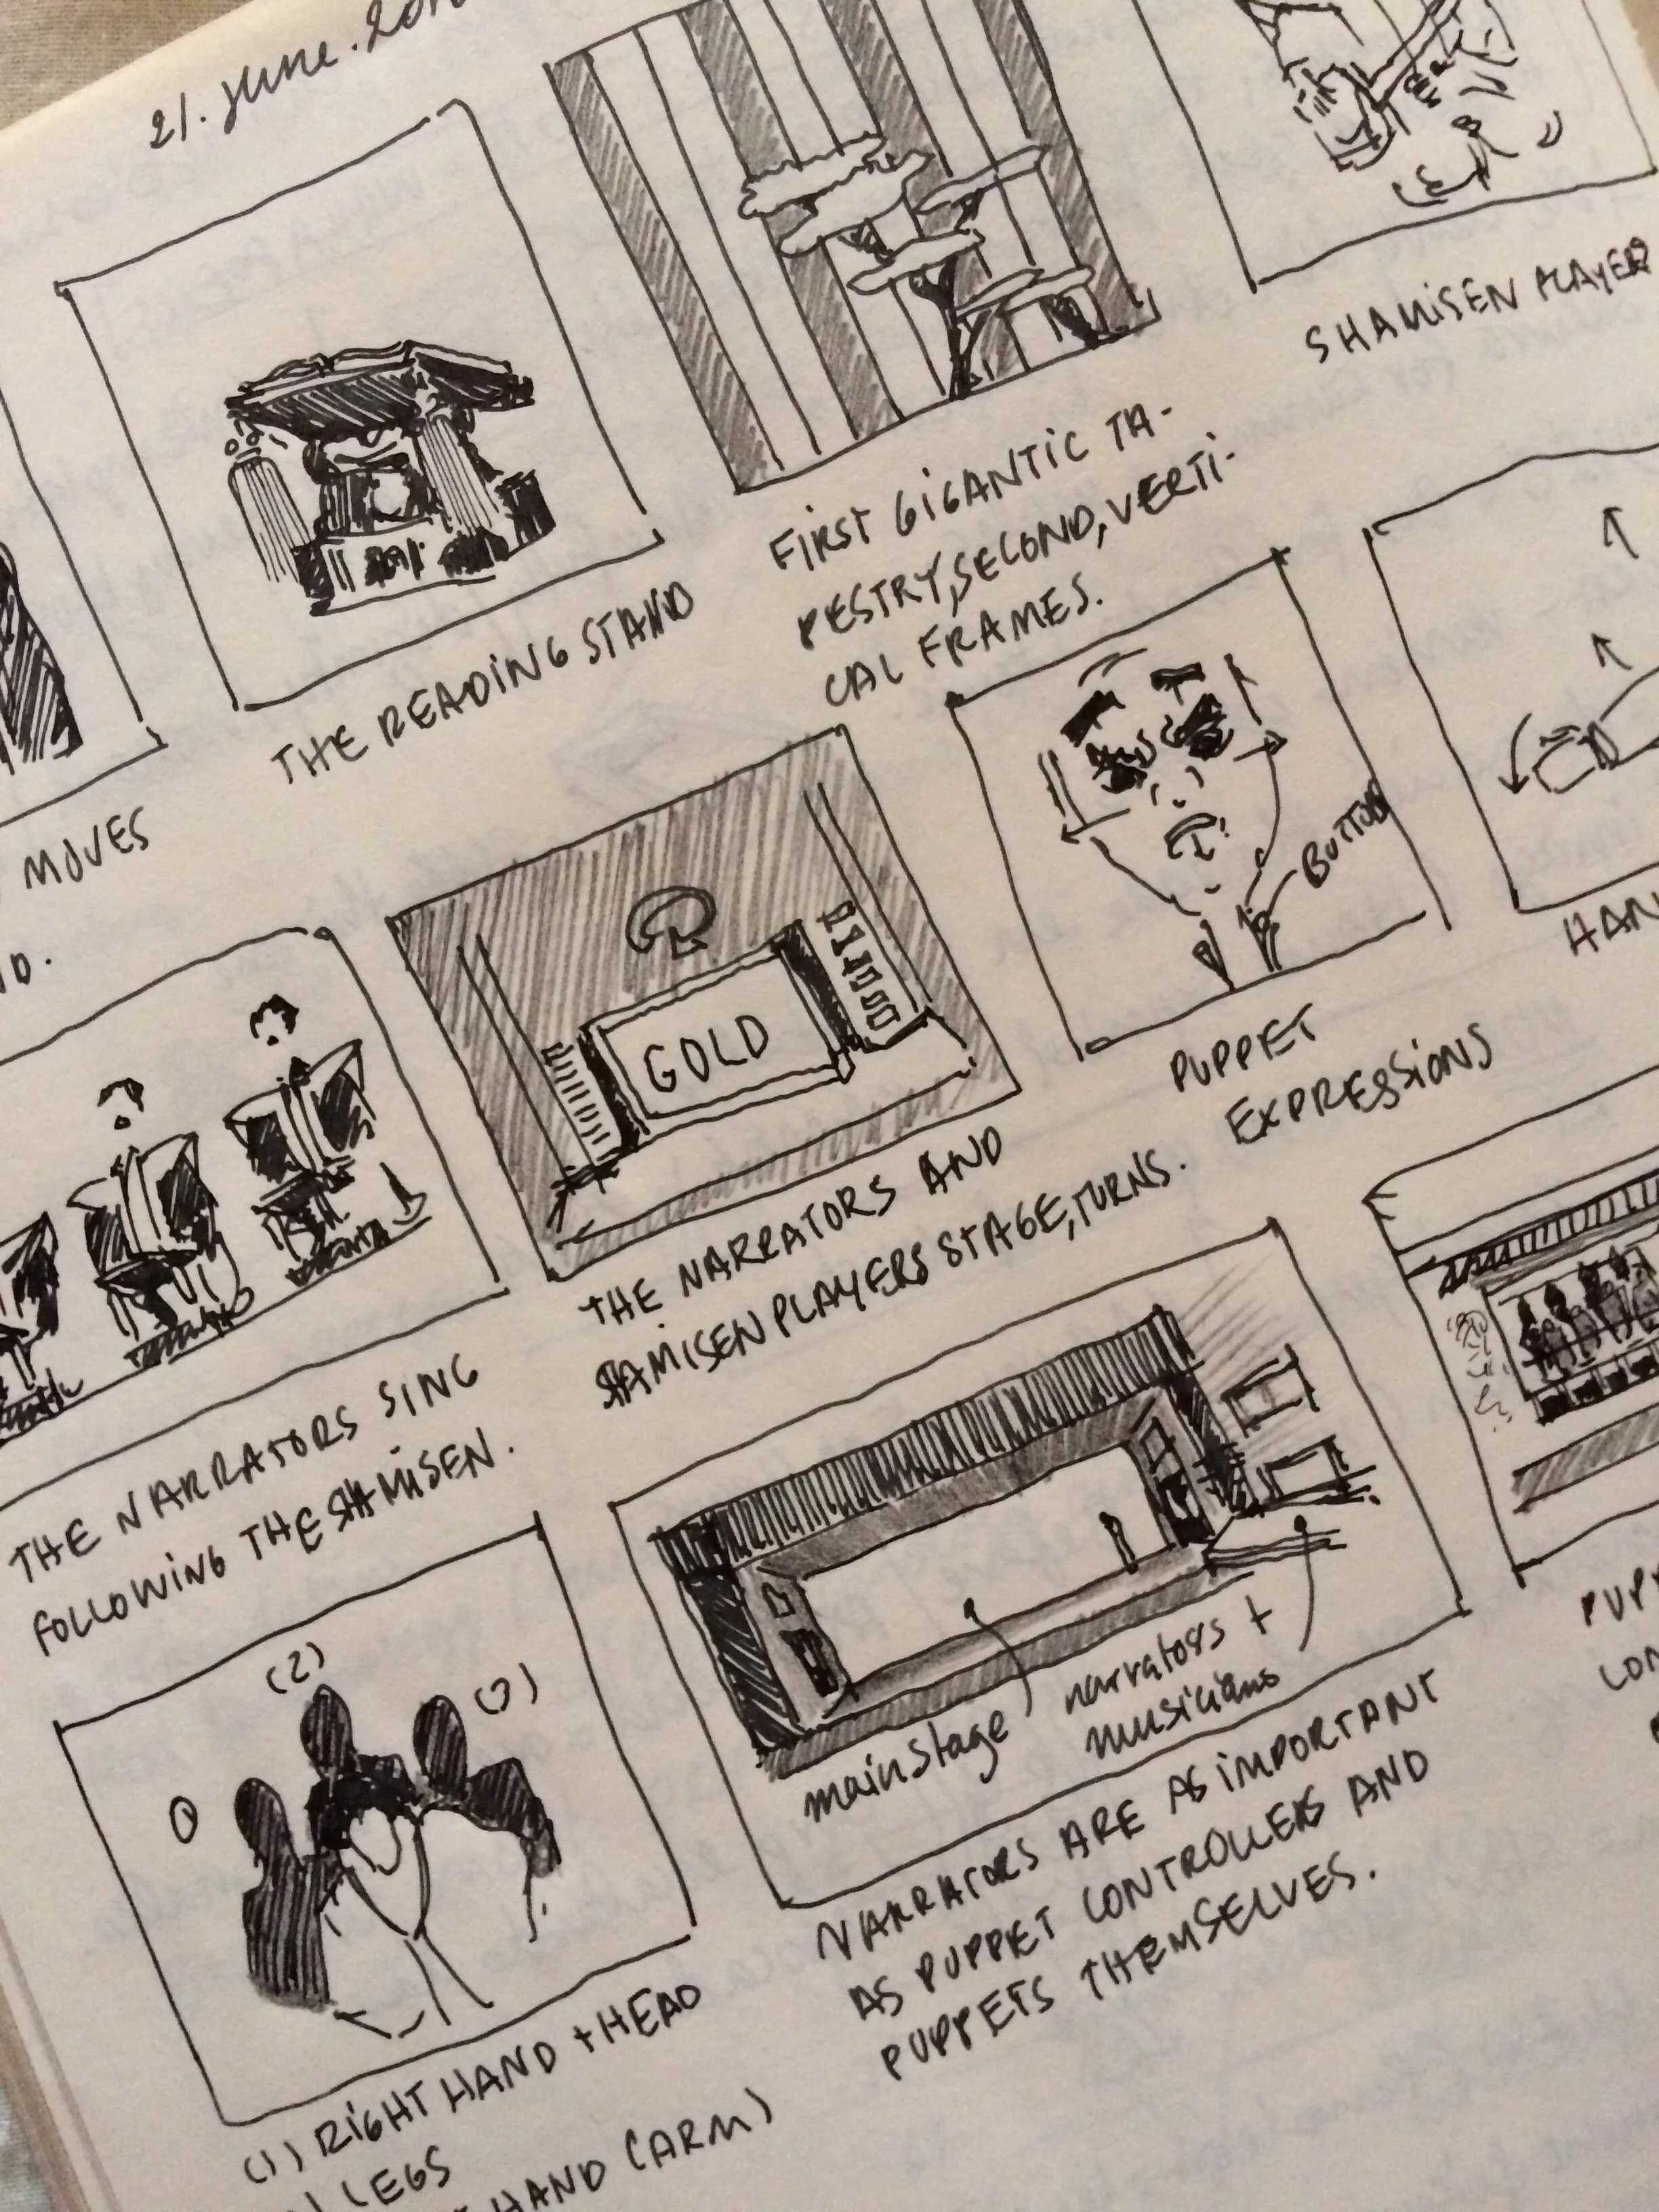 21. June. 201
THE READING STAND
FIRST GIGANTIC TA-
PESTRY, SECOND, VERTI-
CAL FRAMES.
SHAMISEN PLAYER
MOVES
GOLD
THE NARRATORS AND
SHAMISEN PLAYERS STAGE, TURNS.
BUTTON
PUPPET
EXPRESSIONS
HAN
THE NARRATORS SING
FOLLOWING THE SHAMISEN.
main stage
narrators +
musicians
NARRATORS ARE AS IMPORTANT
AS PUPPET CONTROLLERS AND
PUPPETS THEMSELVES.
PUPP
CON
(2)
(3)
(1) RIGHT HAND + HEAD
LEGS
HAND (ARM)